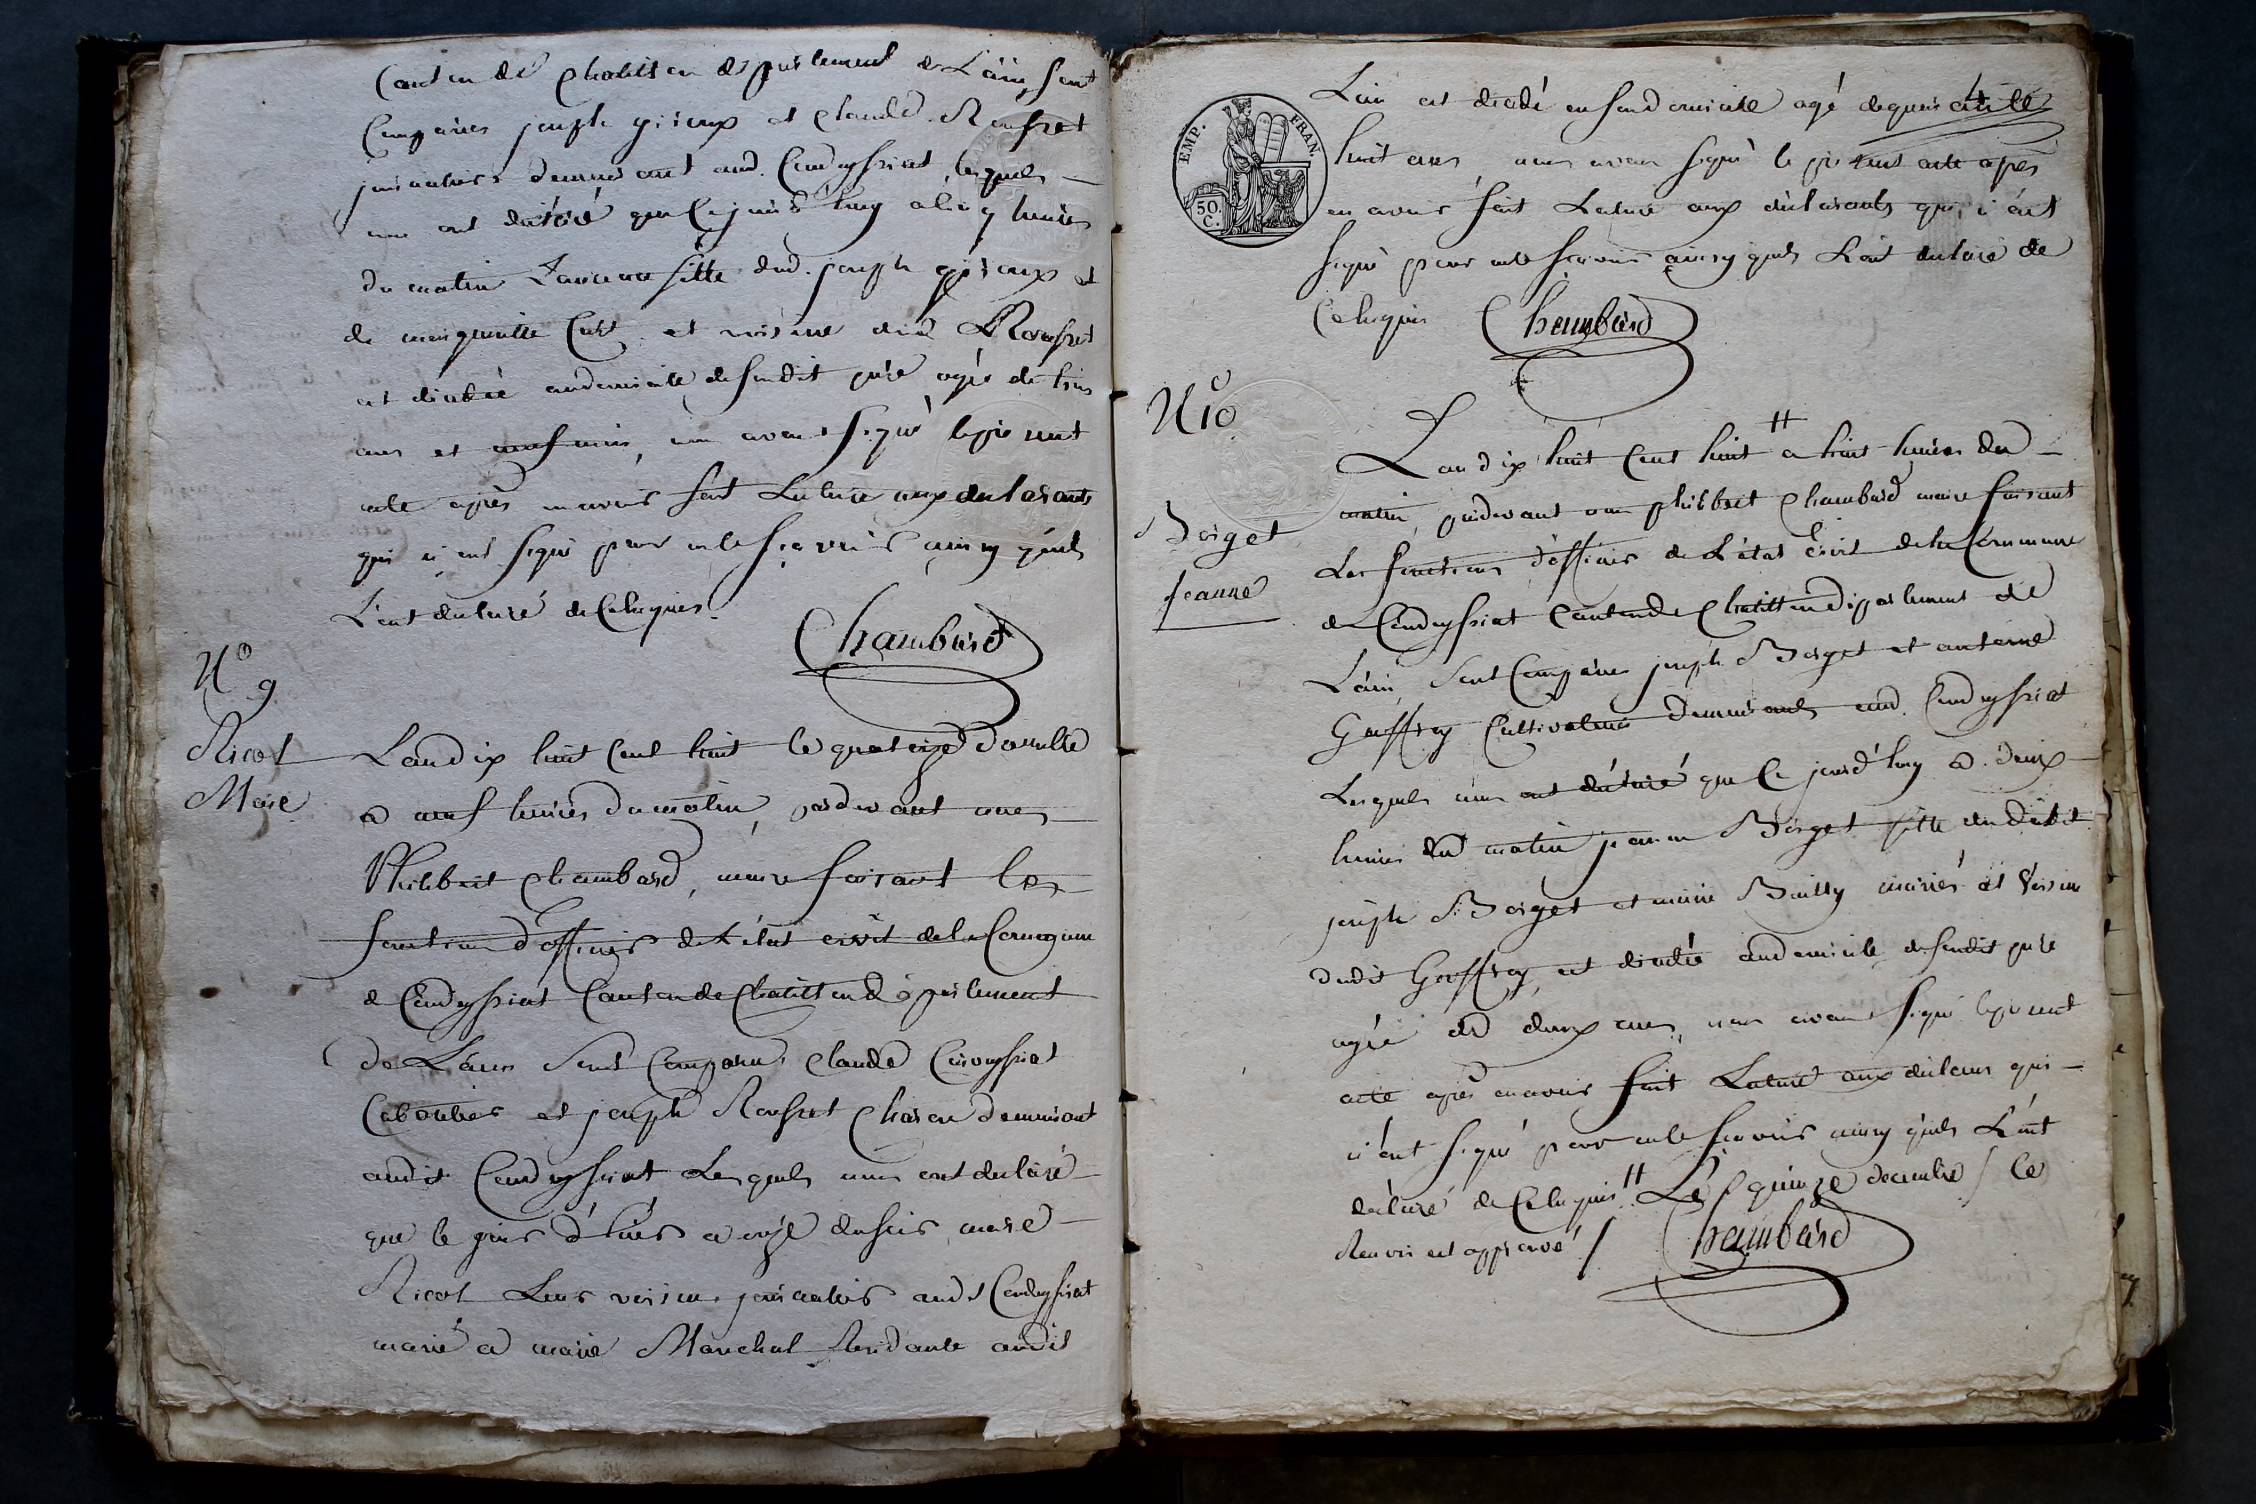 Canton de Chatillon département de L'ain, sont
Comparus joseph et Claude Rousset
journaliers demeurant aud. Condeyssiat, lesquels
nous ont déclaré que Cejourd'huy a Cinq heures
du matin fille dud. joseph et
de Curt et voisine dud. Rousset
est décédée audomicile desondit père agée de trois
ans et neuf mois, nous avons signé leprésent
acte après enavoir fait Lecture aux déclarants
qui n'ont signé pour nele sçavoir ainsy quils
L'ont déclaré de Cerequis.
Chambard
N° 9
Ricol
Mare
L'an dix huit Cent huit le quatorze décembre
a neuf heures du matin, pardevant nous
Philibert Chambard, maire faisant les
fonctions d'officier de L'état civil dela Commune
de Condeyssiat Canton de Chatillon département
de L'ain Sont Comparus Claude Curveyssiat
Cabartier et joseph Roussat Charon demeurant
audit Condeyssiat Lesquels nous ont déclaré
que le jour d'hier a onze dusoir, mare
Ricol Leur voisin, journalier aud. Condeyssiat
marié a marie Maréchal Residante audit
EMP. FRAN.
50. C.
Lain est décédé enson domicile agé dequarente
huit ans, nous avons signé le présent acte après
en avoir fait Lecture aux déclarants qui n'ont
signé pour nele sçavoir ainsy quils Lont déclaré de
Cerequis Chambard
N° 10
Borget
Jeanne
L'an dix huit Cent huit # a huit heures du
matin, pardevant nous philibert Chambard maire faisant
Les fonctions d'officier de L'état Civil dela Commune
de Condeyssiat Canton de Chatillon département de
L'ain, Sont Comparus joseph Borget et antoine
Geoffray Cultivateurs demeurants aud. Condeyssiat
Lesquels nous ont déclaré que Ce jourd'huy a deux
heures du matin jeanne Borget fille dudit
joseph Borget et marie Bailly mariés et voisine
dudit Geoffray, est décédée audomicile desondit père
agée de deux ans, nous avons signé leprésent
acte après enavoir fait Lecture aux qui
n'ont signé pour nele sçavoir ainsy quils L'ont
déclaré de Cerequis. # Le quinze decembre / Ce
Renvoi est approuvé / Chambard